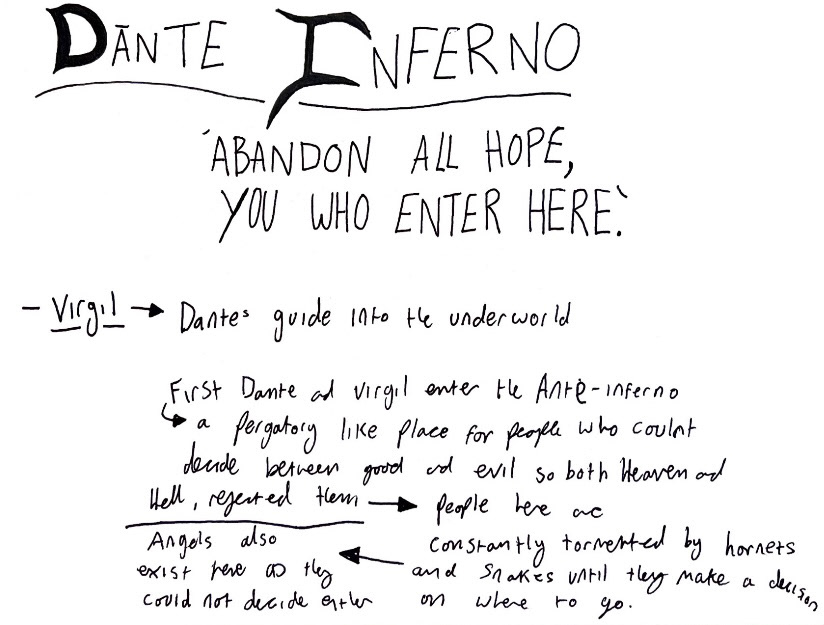 DĀNTE INFERNO
'ABANDON ALL HOPE,
YOU WHO ENTER HERE.'
- Virgil → Dantes guide into the underworld
First Dante ad Virgil enter the Antè-inferno
↳ a pergatory like place for people who couldnt
decide between good ad evil so both Heaven ad
Hell, rejected them → people here are
Angels also
exist here as they
could not decide either
← constantly tormented by hornets
and snakes until they make a decision
on where to go.